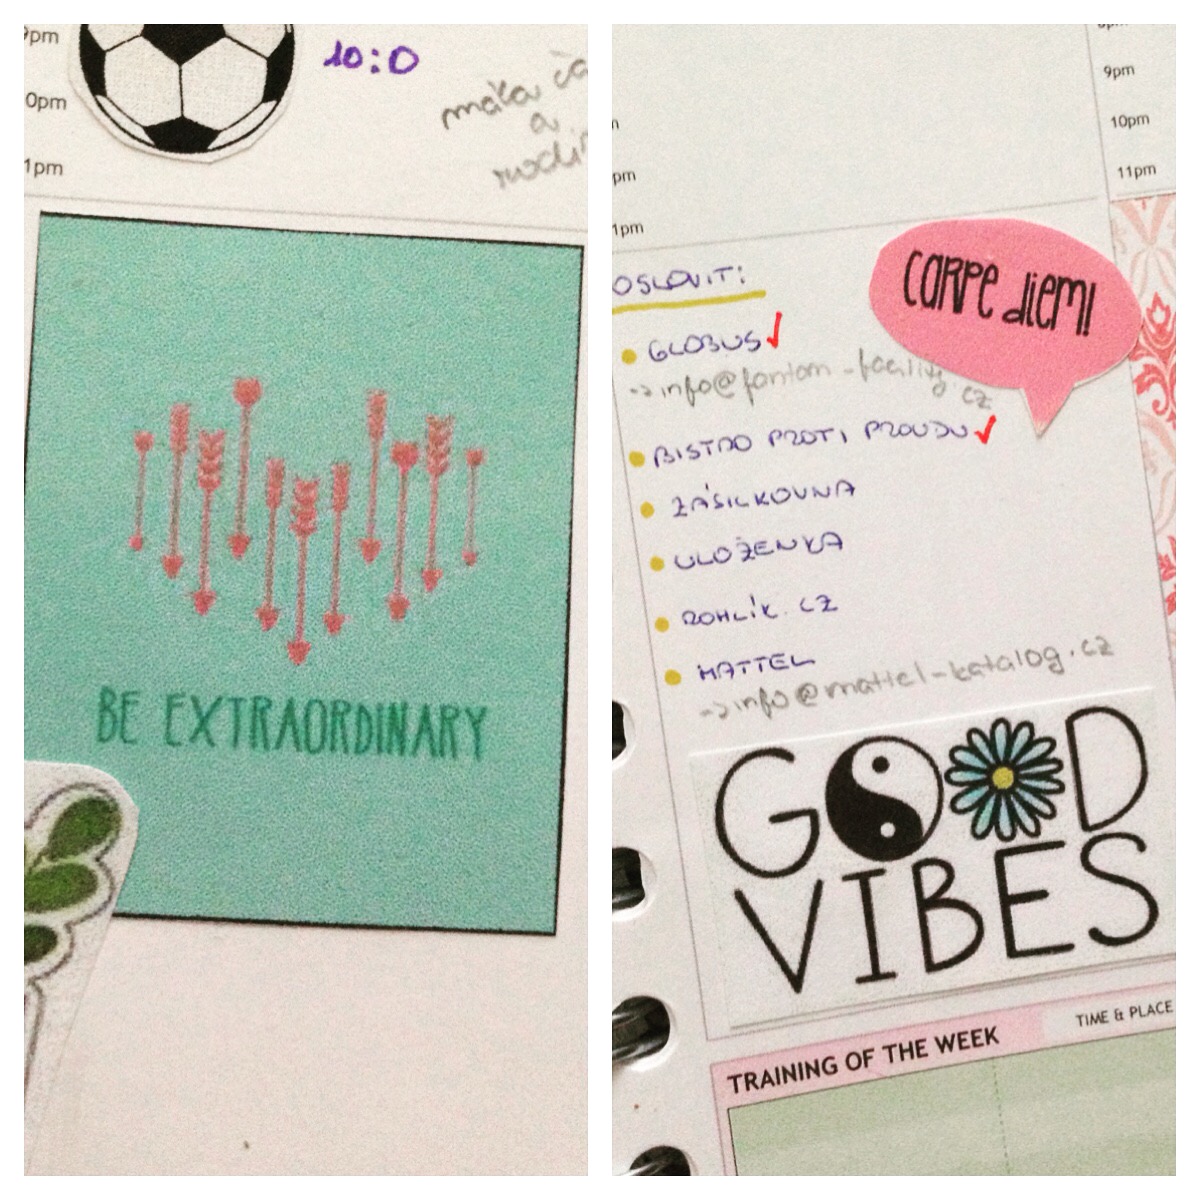 9pm
10:0
0pm
a
1pm
BE EXTRAORDINARY
9pm
10pm
pm
11pm
1pm
OSLOVIT:
CARPE diem!
GLOBUS
→ info@fantom-facility.cz
BISTRO PROTI PROUDU
ZÁSILKOVNA
ULOŽENKA
ROHLÍK.CZ
MATTEL
→ info@mattel-katalog.cz
GOOD
VIBES
TRAINING OF THE WEEK
TIME & PLACE